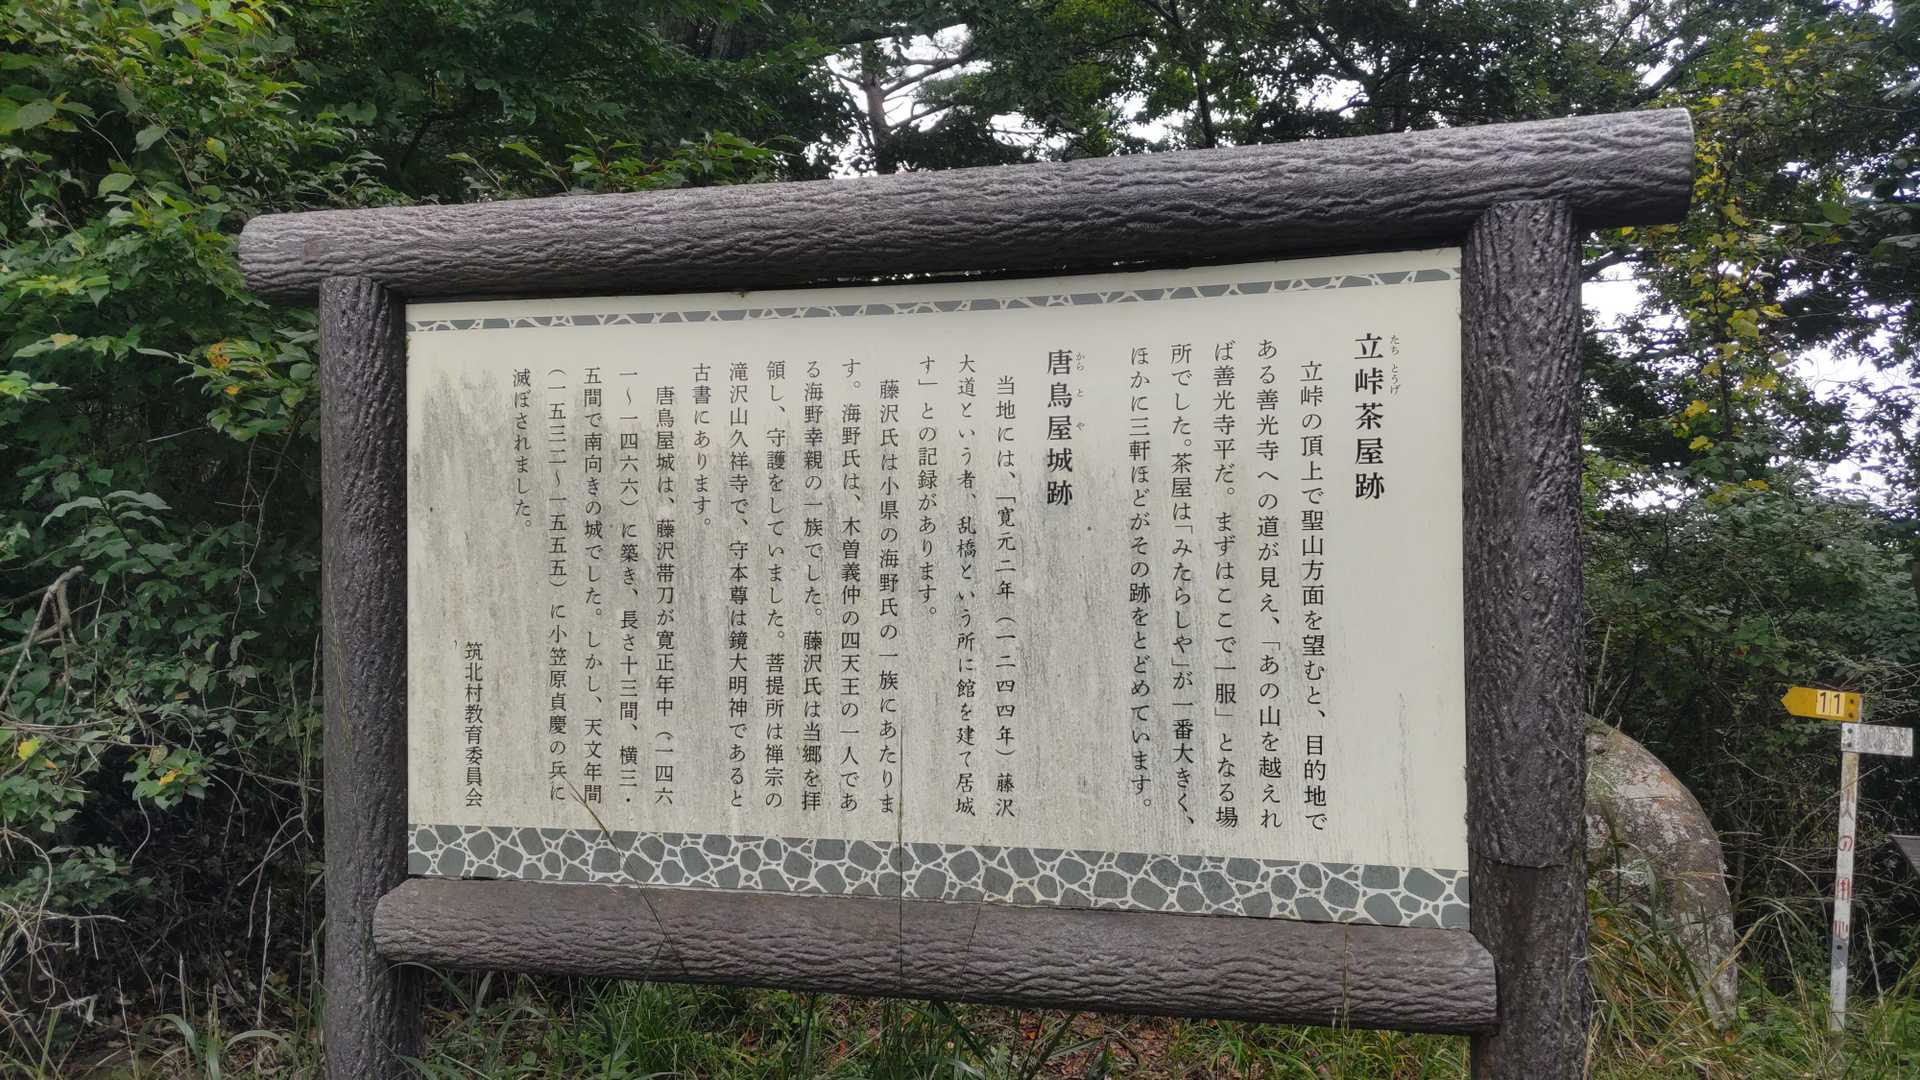 立峠茶屋跡
たち とうげ
立峠の頂上で聖山方面を望むと、目的地で
ある善光寺への道が見え、「あの山を越えれ
ば善光寺平だ。まずはここで一服」となる場
所でした。茶屋は「みたらしや」が一番大きく、
ほかに三軒ほどがその跡をとどめています。
唐鳥屋城跡
から と や
当地には、「寛元二年（一二四四年）藤沢
大道という者、乱橋という所に館を建て居城
す」との記録があります。
藤沢氏は小県の海野氏の一族にあたりま
す。海野氏は、木曽義仲の四天王の一人であ
る海野幸親の一族でした。藤沢氏は当郷を拝
領し、守護をしていました。菩提所は禅宗の
滝沢山久祥寺で、守本尊は鏡大明神であると
古書にあります。
唐鳥屋城は、藤沢帯刀が寛正年中（一四六
一～一四六六）に築き、長さ十三間、横三・
五間で南向きの城でした。しかし、天文年間
（一五三二～一五五五）に小笠原貞慶の兵に
滅ぼされました。
筑北村教育委員会
11